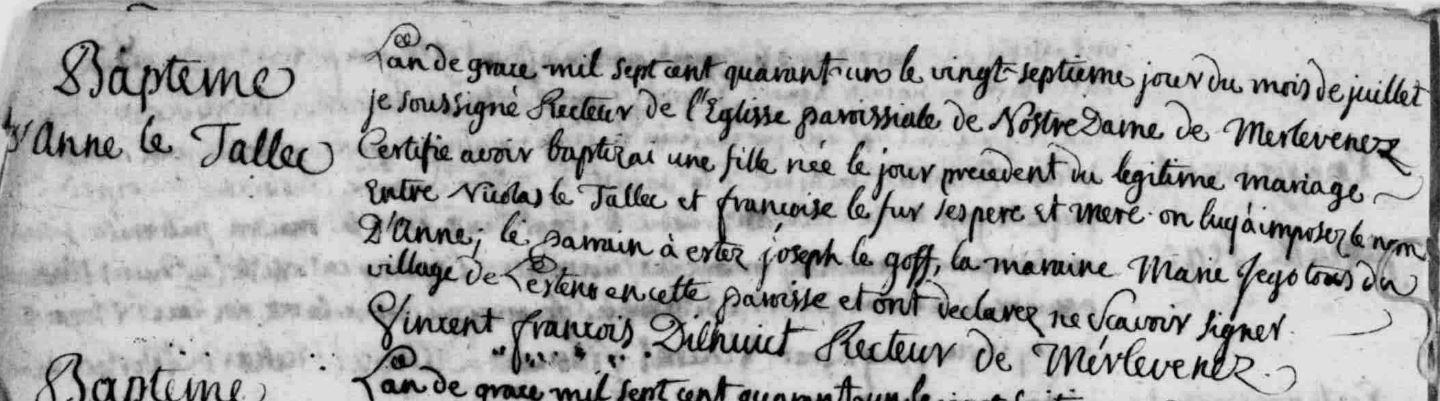 Bapteme
d'Anne le Tallec
L'an de grace mil sept cent quarant un le vingt septieme jour du mois de juillet
je soussigné Recteur de l'Eglisse paroissiale de Nostre Dame de Merlevenez
Certifie avoir baptizai une fille née le jour precedent du legitime mariage
Entre Nicolas le Tallec et françoise le fur ses pere et mere. on luy à imposez le nom
D'Anne; le parrain à estez joseph le goff, la maraine Marie Jego tous du
village de en cette paroisse et ont declarez ne scavoir signer.
Vincent françois Dilhuict Recteur de Merlevenez.
Bapteme
L'an de grace mil sept cent quarant un le vingt